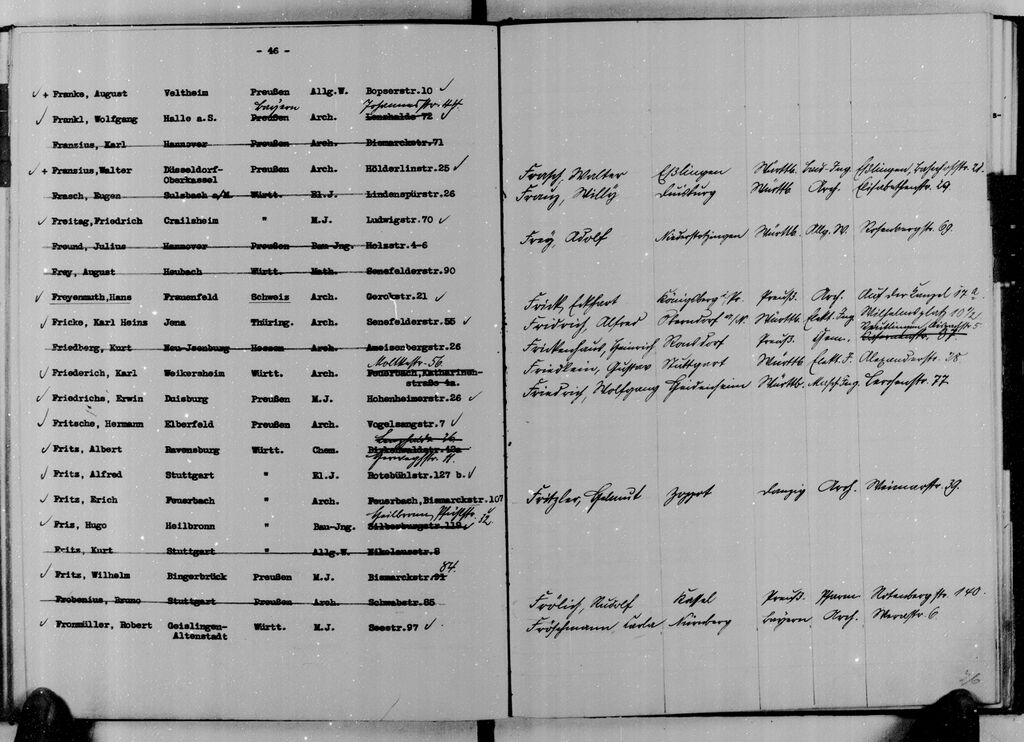 - 46 -
✓ + Franke, August Veltheim Preußen Allg.W. Bopserstr.10 ✓
Bayern Johannesstr. 44.
✓ Frankl, Wolfgang Halle a.S. Preußen Arch. Lenzhalde 72 ✓
Franzius, Karl Hannover Preußen Arch. Bismarckstr.71
✓ + Franzius,Walter Düsseldorf- Preußen Arch. Hölderlinstr.25 ✓
Oberkassel
Frasch, Eugen Sulzbach a/M. Württ. El.J. Lindenspürstr.26
✓ Freitag,Friedrich Crailsheim " M.J. Ludwigstr.70 ✓
Freund, Julius Hannover Preußen Bau-Jng. Holzstr.4-6
Frey, August Heubach Württ. Math. Senefelderstr.90
✓ Freyenmuth,Hans Frauenfeld Schweiz Arch. Gerokstr.21 ✓
✓ Fricke, Karl Heinz Jena Thüring. Arch. Senefelderstr.55 ✓
Friedberg, Kurt Neu-Jsenburg Hessen Arch. Ameisenbergstr.26
Moltkestr. 56.
✓ Friederich, Karl Weikersheim Württ. Arch. Feuerbach,Katharinen-
straße 4a.
✓ Friedrichs, Erwin Duisburg Preußen M.J. Hohenheimerstr.26 ✓
✓ Fritsche, Hermann Elberfeld Preußen Arch. Vogelsangstr.7 ✓
✓ Fritz, Albert Ravensburg Württ. Chem. Birkenwaldstr.12a
Herwegstr. 11.
✓ Fritz, Alfred Stuttgart " El.J. Rotebühlstr.127 b. ✓
✓ Fritz, Erich Feuerbach " Arch. Feuerbach,Bismarckstr.107
Heilbronn 12.
✓ Fris, Hugo Heilbronn " Bau-Jng. Silberburgstr.119
Fritz, Kurt Stuttgart " Allg.W. Nikolausstr.8
84.
✓ Fritz, Wilhelm Bingerbrück Preußen M.J. Bismarckstr.91
Frobenius, Bruno Stuttgart Preußen Arch. Schwabstr.85
✓ Fronmüller, Robert Geislingen- Württ. M.J. Seestr.97 ✓
Altenstadt
Frasch, Walter Eßlingen Württb. Bau-Ing. Eßlingen, Bahnhofstr. 21.
Franz, Willy Duisburg Württb. Arch. Elisabethenstr. 29.
Frey, Adolf Niederstotzingen Württb. Allg. W. Rosenbergstr. 69.
Frick, Eckhart Königsberg i. Pr. Preuß. Arch. Auf der 17 a
Friedrich, Alfred Sterndorf Württb. Elekt. Ing. Wilhelmsplatz 10 1/2
Frickenhaus, Heinrich Ronsdorf Preuß. Chem.
Friedlein, Gustav Stuttgart Württb. Elekt. I. Alexanderstr. 28.
Friedrich, Wolfgang Heidenheim Württb. Masch. Ing. Lerchenstr. 77.
Fritzler, Helmut Zoppot Danzig Arch. Weimarstr. 39.
Frölich, Rudolf Kassel Preuß. Pharm. Rotenbergstr. 140.
Fröschmann, Carla Nürnberg Bayern Arch. Werastr. 6.
46